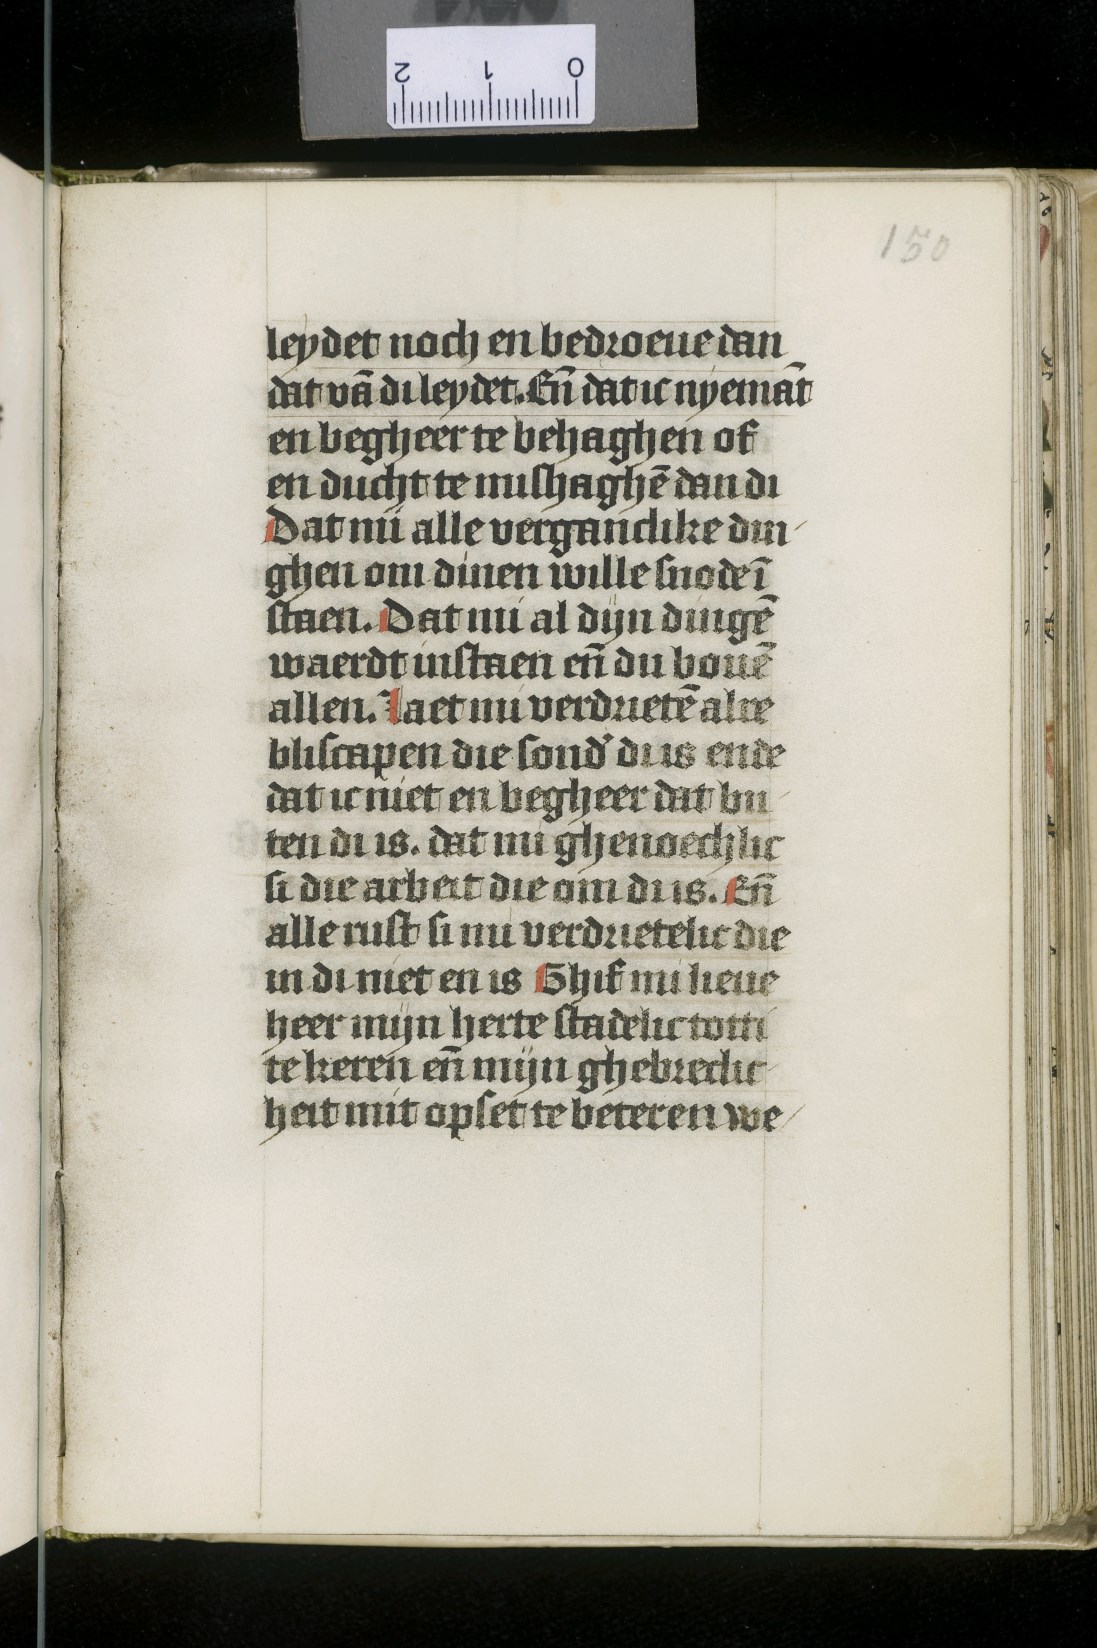 2 1 0
150
leydet noch en bedroeue dan
dat vā di leydet. En̄ dat ic nyemāt
en begheer te behaghen of
en ducht te mishaghē dan di
Dat mi alle verganclike din
ghen om dinen wille snode ī
staen. Dat mi al dijn dingē
waerdt instaen en̄ du bouē
allen. Laet mi verdrietē alre
bliscapen die sond' di is ende
dat ic niet en begheer dat bu
ten di is. dat mi ghenoechlic
si die arbeit die om di is. En̄
alle rust si mi verdrietelic die
in di niet en is Ghif mi lieue
heer mijn herte stadelic totti
te keren en̄ mijn ghebreclic
heit mit opset te beteren we